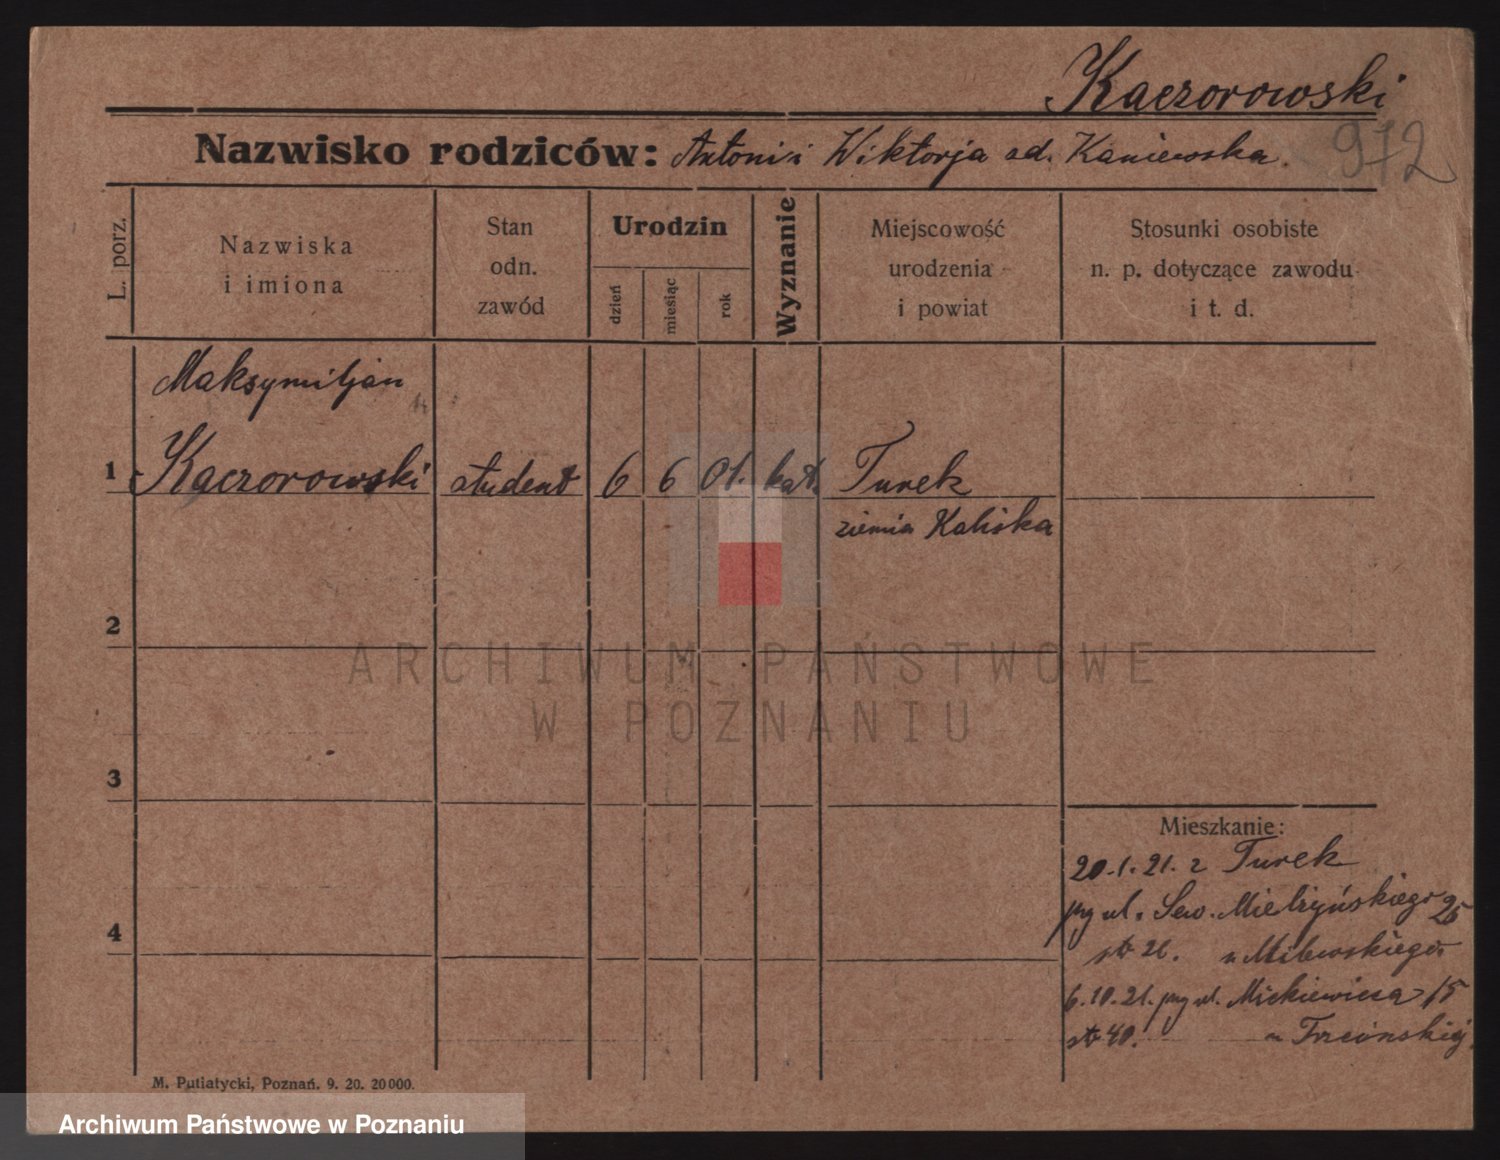 Kaczorowski
Nazwisko rodziców: Antoni i Wiktorja zd. Kaniewska.
972
L. porz.
Nazwiska
i imiona
Stan
odn.
zawód
Urodzin
dzień
miesiąc
rok
Wyznanie
Miejscowość
urodzenia
i powiat
Stosunki osobiste
n. p. dotyczące zawodu
i t. d.
Maksymiljan
1 Kaczorowski student 6 6 01. kat. Turek
ziemia Kaliska
2
ARCHIWUM PAŃSTWOWE
W POZNANIU
3
Mieszkanie:
20.1.21. z Turek
przy ul. Sew. Mielżyńskiego 25
4
u Milewskiego
6.10.21. przy ul. Mickiewicza 15
M. Putiatycki, Poznań. 9. 20. 20000.
Archiwum Państwowe w Poznaniu